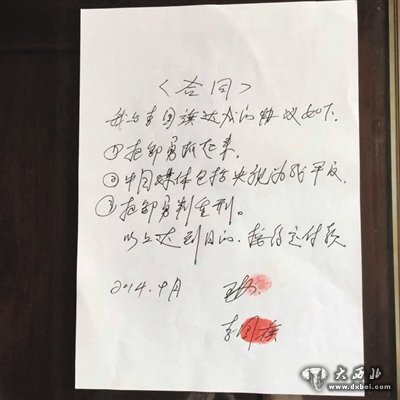 <合同>
我与李国谈达成的协议如下.
①把邹勇抓起来.
②中国媒体包括央视为我平反.
③把邹勇判重刑.
以上达到目的.按约定付款
2014.4月
李国
大西北
www.dxbei.com